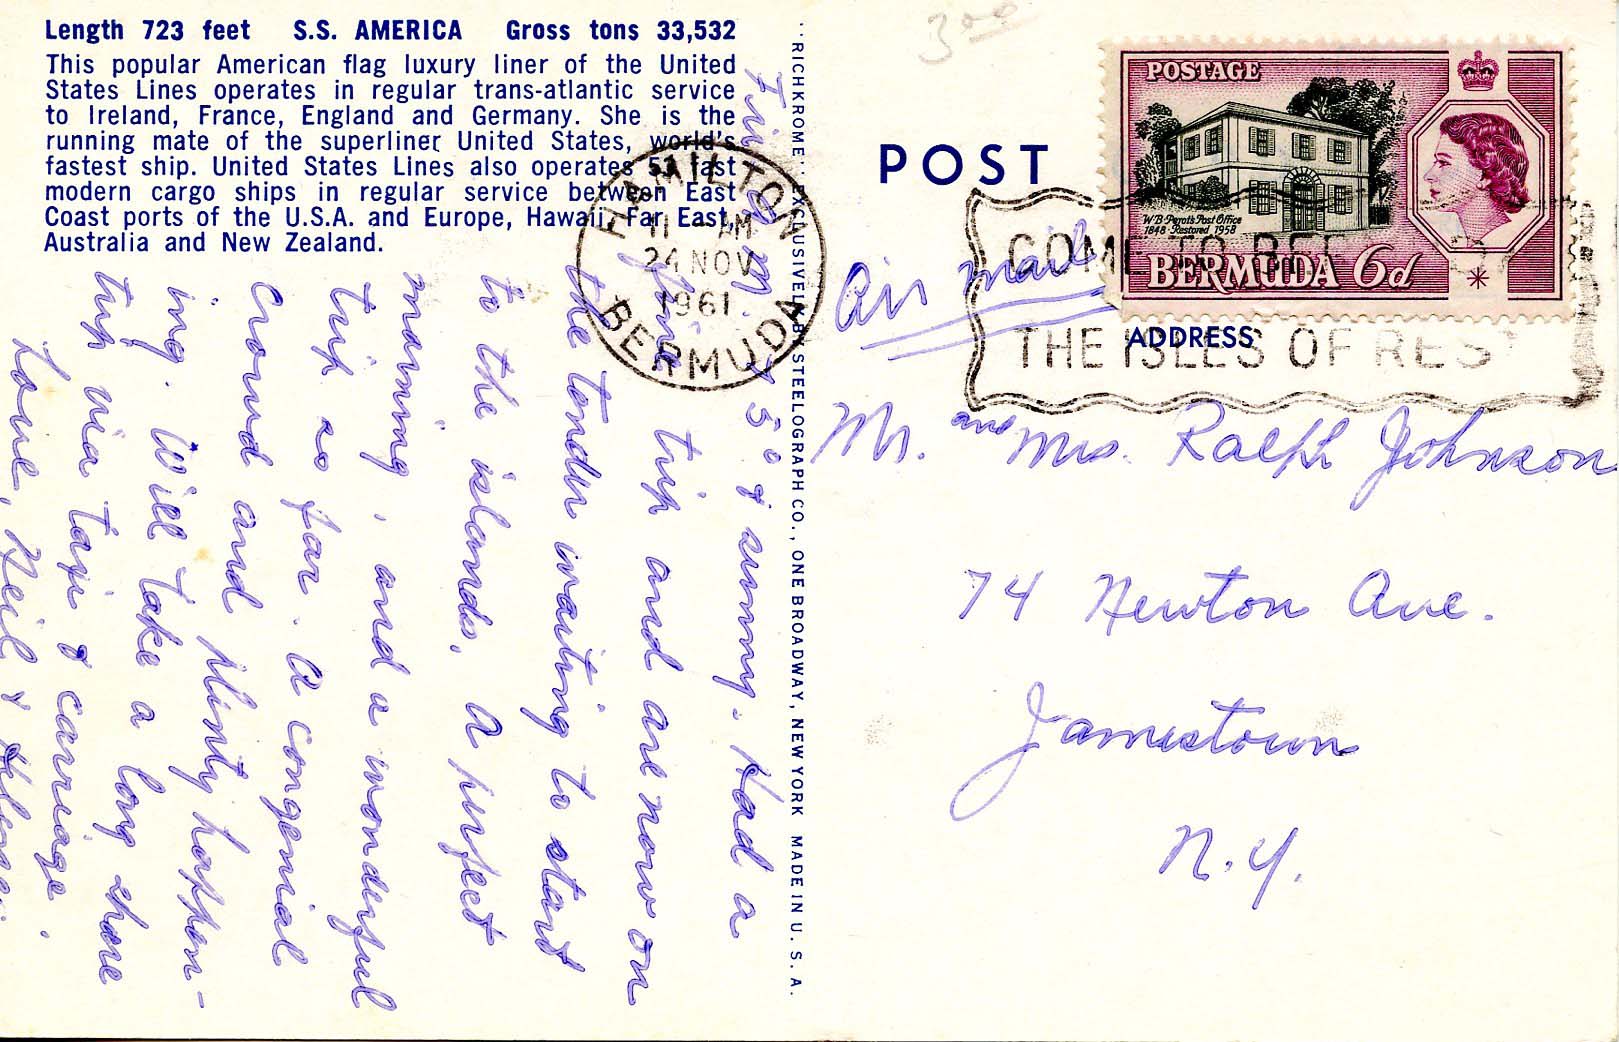 Length 723 feet S.S. AMERICA Gross tons 33,532
This popular American flag luxury liner of the United
States Lines operates in regular trans-atlantic service
to Ireland, France, England and Germany. She is the
running mate of the superliner United States, world's
fastest ship. United States Lines also operates 53 fast
modern cargo ships in regular service between East
Coast ports of the U.S.A. and Europe, Hawaii, Far East,
Australia and New Zealand.
75° & sunny. Had a
fine trip and are now on
the tender waiting to start
to the islands. A perfect
morning, and a wonderful
trip so far. A congenial
crowd and plinty happen-
ing. Will take a long shore
trip via taxi & carriage.
Love, Neil &
"RICHKROME" EXCLUSIVELY BY STEELOGRAPH CO., ONE BROADWAY, NEW YORK MADE IN U. S. A.
3 00
HAMILTON
11 AM
24 NOV
1961
BERMUDA
POST
ADDRESS
POSTAGE
W.B. Perot's Post Office
1848 Restored 1958
BERMUDA 6d
COME TO BER
THE ISLES OF RES
Air mail
Mr. and Mrs. Ralph Johnson
74 Newton Ave.
Jamestown
N.Y.